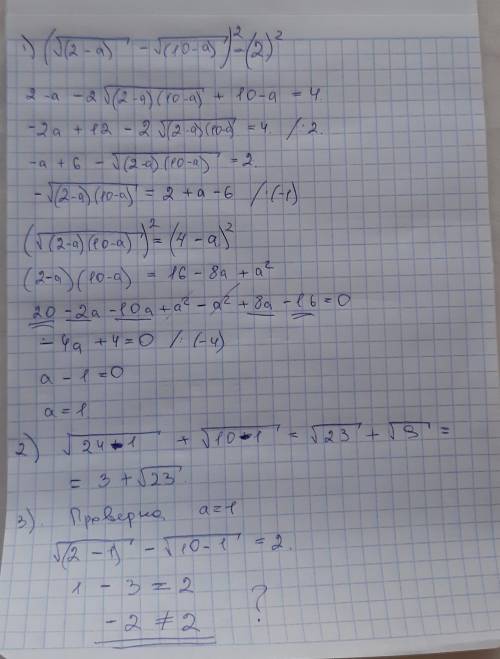 1) (√(2-a) - √(10-a))² = (2)²
2-a - 2√(2-a)(10-a) + 10-a = 4
-2a + 12 - 2√(2-a)(10-a) = 4 /:2.
-a + 6 - √(2-a)(10-a) = 2.
-√(2-a)(10-a) = 2 + a - 6 /·(-1)
(√(2-a)(10-a))² = (4 - a)²
(2-a)(10-a) = 16 - 8a + a²
20 - 2a - 10a + a² - a² + 8a - 16 = 0
-4a + 4 = 0 /:(-4)
a - 1 = 0
a = 1
2) √24-1 + √10-1 = √23 + √9 =
= 3 + √23
3). Проверка a = 1
√(2-1) - √10-1 = 2.
1 - 3 = 2
-2 ≠ 2 ?